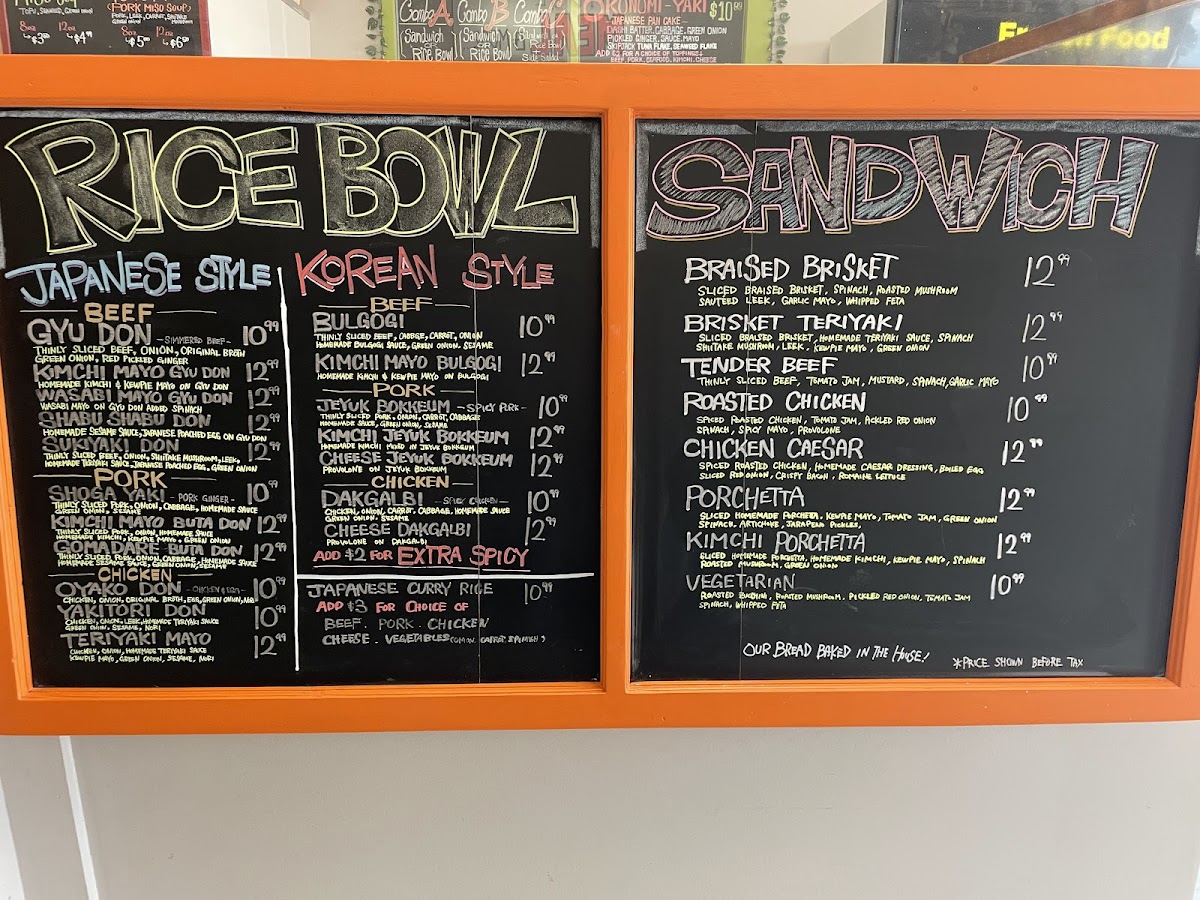 TOFU, SEAWEED, GREEN ONION
8oz 12oz
$3 50 $4 99
(PORK MISO SOUP)
PORK, LEEK, CARROT, SHIITAKE MUSHROOM
GREEN ONION
8oz 12oz
$5 50 $6 50
Combo A Combo B Combo C
Sandwich OR Rice Bowl
Sandwich OR Rice Bowl
Sandwich or Rice Bowl
Side Salad
OKONOMI-YAKI $10 99
JAPANESE PAN CAKE
DASHI BATTER, CABBAGE, GREEN ONION
PICKLED GINGER, SAUCE, MAYO
SKIPJACK TUNA FLAKE, SEAWEED FLAKE
ADD $2 FOR A CHOICE OF TOPPINGS
BEEF, PORK, SEAFOOD, KIMCHI, CHEESE
Food
RICE BOWL
JAPANESE STYLE
BEEF
GYU DON -SIMMERED BEEF- 10 99
THINLY SLICED BEEF, ONION, ORIGINAL BROTH
GREEN ONION, RED PICKLED GINGER
KIMCHI MAYO GYU DON 12 99
HOMEMADE KIMCHI & KEWPIE MAYO ON GYU DON
WASABI MAYO GYU DON 12 99
WASABI MAYO ON GYU DON ADDED SPINACH
SHABU SHABU DON 12 99
HOMEMADE SESAME SAUCE, JAPANESE POACHED EGG ON GYU DON
SUKIYAKI DON 12 99
THINLY SLICED BEEF, ONION, SHIITAKE MUSHROOM, LEEK,
HOMEMADE TERIYAKI SAUCE, JAPANESE POACHED EGG, GREEN ONION
PORK
SHOGA YAKI -PORK GINGER- 10 99
THINLY SLICED PORK, ONION, CABBAGE, HOMEMADE SAUCE
GREEN ONION, SESAME
KIMCHI MAYO BUTA DON 12 99
THINLY SLICED PORK, ONION, HOMEMADE SAUCE
HOMEMADE KIMCHI, KEWPIE MAYO, GREEN ONION
GOMADARE BUTA DON 12 99
THINLY SLICED PORK, ONION, CABBAGE, HOMEMADE SAUCE
HOMEMADE SESAME SAUCE, GREEN ONION, SESAME
CHICKEN
OYAKO DON -CHICKEN & EGG- 10 99
CHICKEN, ONION, ORIGINAL BROTH, EGG, GREEN ONION, NORI
YAKITORI DON 10 99
CHICKEN, ONION, LEEK, HOMEMADE TERIYAKI SAUCE
GREEN ONION, SESAME, NORI
TERIYAKI MAYO 12 99
CHICKEN, ONION, HOMEMADE TERIYAKI SAUCE
KEWPIE MAYO, GREEN ONION, SESAME, NORI
KOREAN STYLE
BEEF
BULGOGI 10 99
THINLY SLICED BEEF, CABBGE, CARROT, ONION
HOMEMADE BULGOGI SAUCE, GREEN ONION, SESAME
KIMCHI MAYO BULGOGI 12 99
HOMEMADE KIMCHI & KEWPIE MAYO ON BULGOGI
PORK
JEYUK BOKKEUM -SPICY PORK- 10 99
THINLY SLICED PORK, ONION, CARROT, CABBAGE
HOMEMADE SAUCE, GREEN ONION, SESAME
KIMCHI JEYUK BOKKEUM 12 99
HOMEMADE KIMCHI MIXED IN JEYUK BOKKEUM
CHEESE JEYUK BOKKEUM 12 99
PROVOLONE ON JEYUK BOKKEUM
CHICKEN
DAKGALBI -SPICY CHICKEN- 10 99
CHICKEN, ONION, CARROT, CABBAGE, HOMEMADE SAUCE
GREEN ONION, SESAME
CHEESE DAKGALBI 12 99
PROVOLONE ON DAKGALBI
ADD $2 FOR EXTRA SPICY
JAPANESE CURRY RICE 10 99
ADD $3 FOR CHOICE OF
BEEF . PORK . CHICKEN
CHEESE . VEGETABLES (ONION, CARROT, SPINACH)
SANDWICH
BRAISED BRISKET 12 99
SLICED BRAISED BRISKET, SPINACH, ROASTED MUSHROOM
SAUTEED LEEK, GARLIC MAYO, WHIPPED FETA
BRISKET TERIYAKI 12 99
SLICED BRAISED BRISKET, HOMEMADE TERIYAKI SAUCE, SPINACH
SHIITAKE MUSHROOM, LEEK, KEWPIE MAYO, GREEN ONION
TENDER BEEF 10 99
THINLY SLICED BEEF, TOMATO JAM, MUSTARD, SPINACH, GARLIC MAYO
ROASTED CHICKEN 10 99
SPICED ROASTED CHICKEN, TOMATO JAM, PICKLED RED ONION
SPINACH, SPICY MAYO, PROVOLONE
CHICKEN CAESAR 12 99
SPICED ROASTED CHICKEN, HOMEMADE CAESAR DRESSING, BOILED EGG
SLICED RED ONION, CRISPY BACON, ROMAINE LETTUCE
PORCHETTA 12 99
SLICED HOMEMADE PORCHETTA, KEWPIE MAYO, TOMATO JAM, GREEN ONION
SPINACH, ARTICHOKE, JARAPENO PICKLES,
KIMCHI PORCHETTA 12 99
SLICED HOMEMADE PORCHETTA, HOMEMADE KIMCHI, KEWPIE MAYO, SPINACH
ROASTED MUSHROOM, GREEN ONION
VEGETARIAN 10 99
ROASTED ZUCCHINI, ROASTED MUSHROOM, PICKLED RED ONION, TOMATO JAM
SPINACH, WHIPPED FETA
OUR BREAD BAKED IN THE HOUSE!
*PRICE SHOWN BEFORE TAX